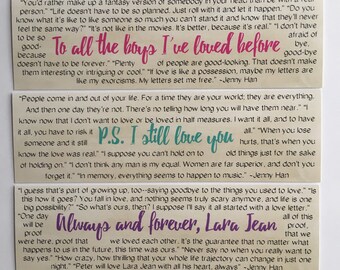 "You'd rather make up a fantasy version of somebody in your head than be with a real
person." "Life doesn't have to be so planned. Just roll with it and let it happen." "Do you
know what it's like to like someone so much you can't stand it and know that they'll never
feel the same way?" "It's not like in the movies. It's better, because it's real." "I don't have
to be so afraid of
good- bye,
To all the boys I've loved before
because good-bye
doesn't have to be forever." "Plenty of people are good-looking. That doesn't make
them interesting or intriguing or cool." "If love is like a possession, maybe my letters are
like my exorcisms. My letters set me free." -Jenny Han
"People come in and out of your life. For a time they are your world; they are everything.
And then one day they're not. There's no telling how long you will have them near." "I
know now that I don't want to love or be loved in half measures. I want it all, and to have
it all, you have to risk it all." "When you lose
P.S. I still love you
someone and it still hurts, that's when you
know the love was real." "I suppose you can't hold on to old things just for the sake
of holding on." "I don't think any man is my equal. Women are far superior, and don't you
forget it." "In memory, everything seems to happen to music." -Jenny Han
"I guess that's part of growing up, too--saying goodbye to the things you used to love." "Is
this how it goes? You fall in love, and nothing seems truly scary anymore, and life is one
big possibility?" "So what's ours, then?" I
"One day all of this
will be proof, that
Always and forever, Lara Jean
proof that we
were here, proof that we loved each other. It's the guarantee that no matter what
happens to us in the future, this time was ours." "Never say no when you really want to
say yes." "How crazy, how thrilling that your whole life trajectory can change in just one
night." "Peter will love Lara Jean with all his heart, always" -Jenny Han